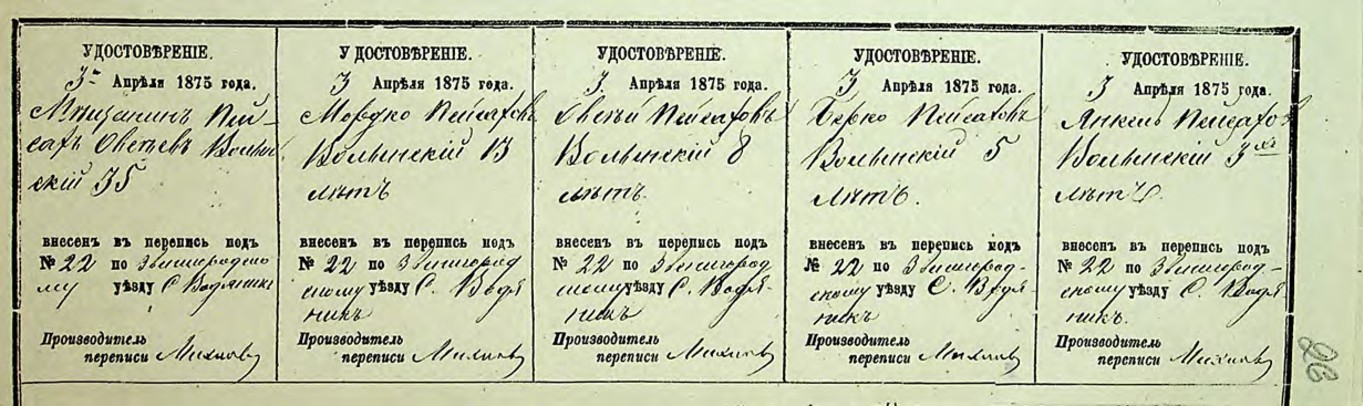 УДОСТОВѢРЕНІЕ.
3го Апрѣля 1875 года.
Мѣщанинъ Пей-
сахъ Овсѣевъ Волын
скій 35
внесенъ въ перепись подъ
№ 22 по Звенигородско
му уѣзду С. Водяникъ
Производитель
переписи
УДОСТОВѢРЕНІЕ.
3 Апрѣля 1875 года.
Мордко Пейсаховъ
Волынскій 13
лѣтъ
внесенъ въ перепись подъ
№ 22 по Звенигород
скому уѣзду С. Водя
никъ
Производитель
переписи
УДОСТОВѢРЕНІЕ.
3 Апрѣля 1875 года.
Овсѣй Пейсаховъ
Волынскій 8
лѣтъ.
внесенъ въ перепись подъ
№ 22 по Звенигород
скому уѣзду С. Водя-
никъ
Производитель
переписи
УДОСТОВѢРЕНІЕ.
3 Апрѣля 1875 года.
Берко Пейсаховъ
Волынскій 5
лѣтъ.
внесенъ въ перепись подъ
№ 22 по Звенигород-
скому уѣзду С. Водя-
никъ
Производитель
переписи
УДОСТОВѢРЕНІЕ.
3 Апрѣля 1875 года.
Янкель Пейсахов
Волынскій 3хъ
лѣтъ.
внесенъ въ перепись подъ
№ 22 по Звенигород-
скому уѣзду С. Водя-
никъ.
Производитель
переписи
26